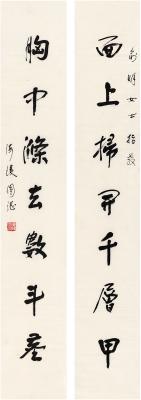 面上掃開千層甲
俞明女士指教
胸中滌去數斗塵